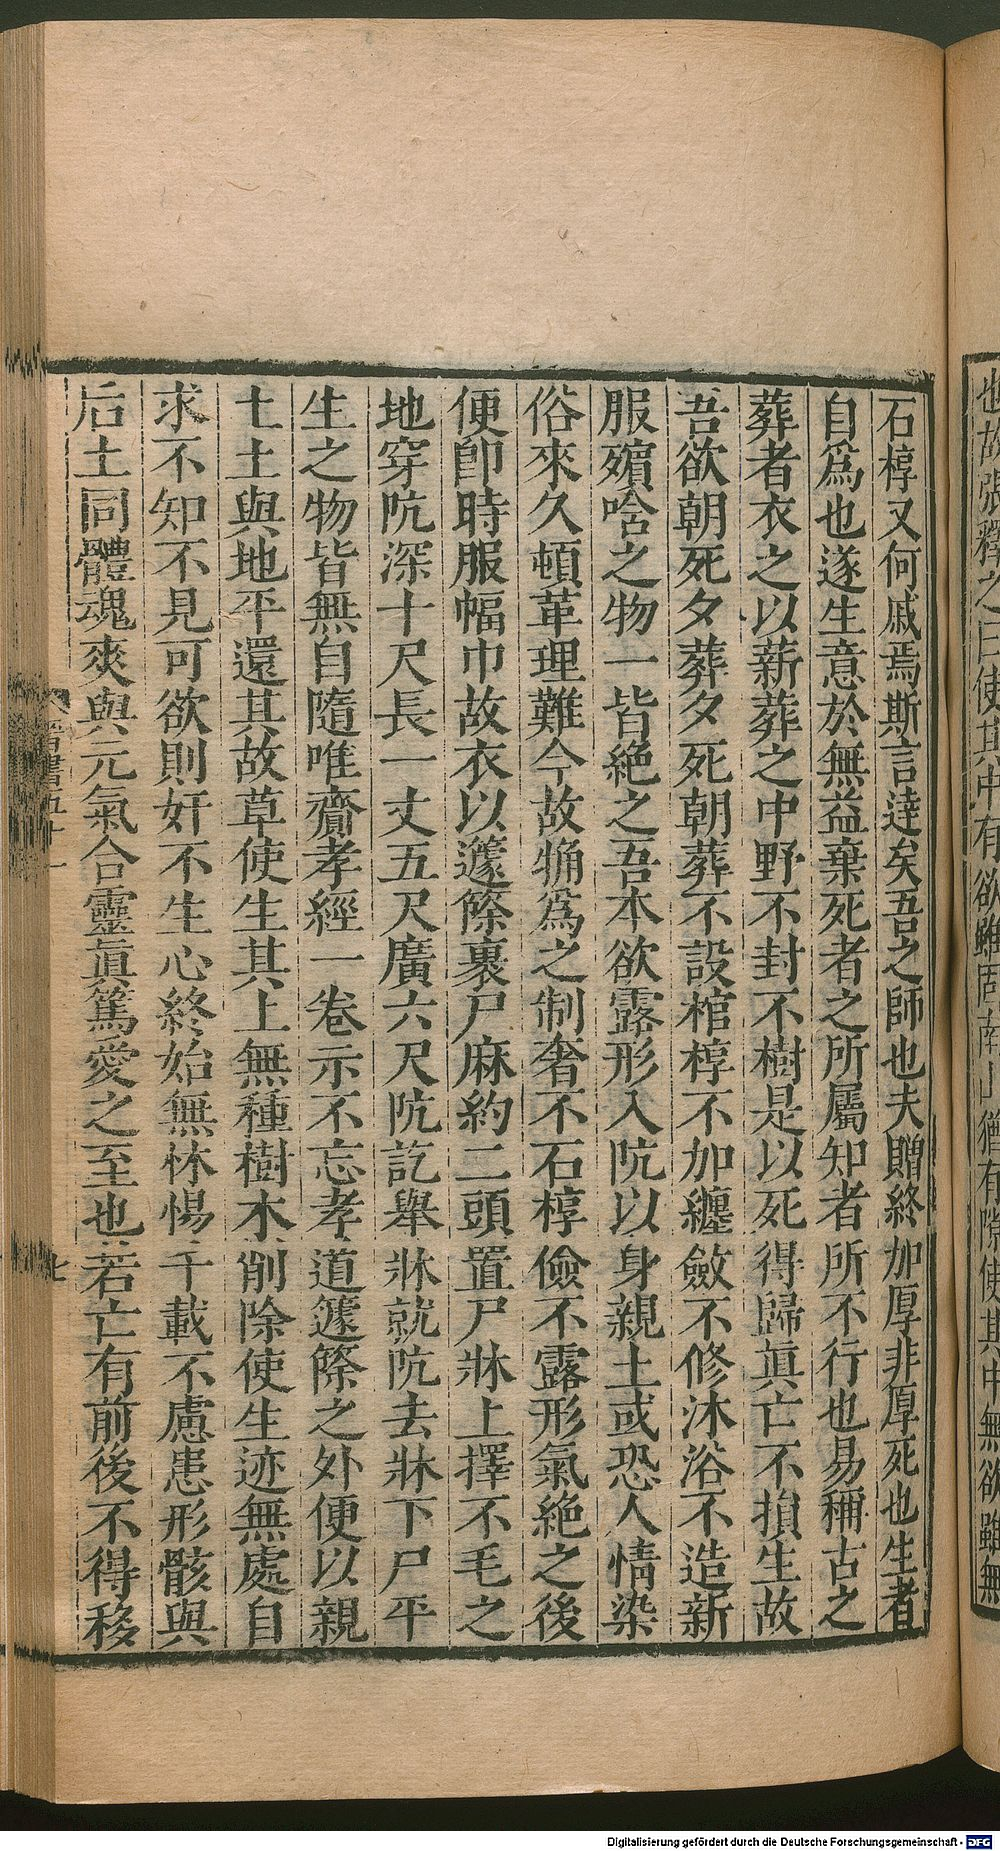 也故張釋之曰使其中有欲雖固南山猶有隙使其中無欲雖無
石椁又何戚焉斯言達矣吾之師也夫贈終加厚非厚死也生者
自爲也遂生意於無益棄死者之所屬知者所不行也易稱古之
葬者衣之以薪葬之中野不封不樹是以死得歸眞亡不損生故
吾欲朝死夕葬夕死朝葬不設棺椁不加纏斂不修沐浴不造新
服殯唅之物一皆絶之吾本欲露形入阬以身親土或恐人情染
俗來久頓革理難今故觕爲之制奢不石椁儉不露形氣絶之後
便卽時服幅巾故衣以籧篨裹尸麻約二頭置尸牀上擇不毛之
地穿阬深十尺長一丈五尺廣六尺阬訖舉牀就阬去牀下尸平
生之物皆無自隨唯齎孝經一卷示不忘孝道籧篨之外便以親
土土與地平還其故草使生其上無種樹木削除使生迹無處自
求不知不見可欲則奸不生心終始無怵惕千載不慮患形骸與
后土同體魂爽與元氣合靈眞篤愛之至也若亡有前後不得移
晉書五十一
七
Digitalisierung gefördert durch die Deutsche Forschungsgemeinschaft - DFG